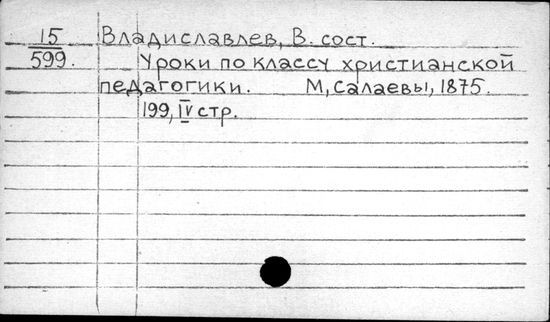 15 Владиславлев, В. сост.
599. Уроки по классу христианской
педагогики. М, Салаевы, 1875.
199, IV стр.